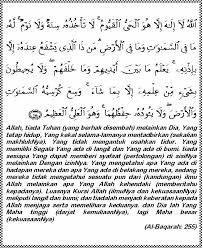 اللَّهُ لَا إِلَٰهَ إِلَّا هُوَ الْحَيُّ الْقَيُّومُ لَا تَأْخُذُهُ سِنَةٌ وَلَا نَوْمٌ لَّهُ
مَا فِي السَّمَاوَاتِ وَمَا فِي الْأَرْضِ مَن ذَا الَّذِي يَشْفَعُ عِندَهُ إِلَّا
بِإِذْنِهِ يَعْلَمُ مَا بَيْنَ أَيْدِيهِمْ وَمَا خَلْفَهُمْ وَلَا يُحِيطُونَ
بِشَيْءٍ مِّنْ عِلْمِهِ إِلَّا بِمَا شَاءَ وَسِعَ كُرْسِيُّهُ السَّمَاوَاتِ
وَالْأَرْضَ وَلَا يَئُودُهُ حِفْظُهُمَا وَهُوَ الْعَلِيُّ الْعَظِيمُ
Allah, tiada Tuhan (yang berhak disembah) melainkan Dia, Yang
tetap hidup, Yang kekal selama-lamanya mentadbirkan (sekalian
makhlukNya). Yang tidak mengantuk usahkan tidur. Yang
memiliki Segala Yang ada di langit dan Yang ada di bumi. tiada
sesiapa Yang dapat memberi syafaat (pertolongan) di sisiNya
melainkan Dengan izinNya. Yang mengetahui apa Yang ada di
hadapan mereka dan apa Yang ada di belakang mereka, sedang
mereka tidak mengetahui sesuatu pun dari (kandungan) ilmu
Allah melainkan apa Yang Allah kehendaki (memberitahu
kepadanya). Luasnya Kursi Allah (ilmuNya dan kekuasaanNya)
meliputi langit dan bumi; dan tiadalah menjadi keberatan kepada
Allah menjaga serta memelihara keduanya. dan Dia lah Yang
Maha tinggi (darjat kemuliaanNya), lagi Maha besar
(kekuasaanNya)
(Al-Baqarah: 255)